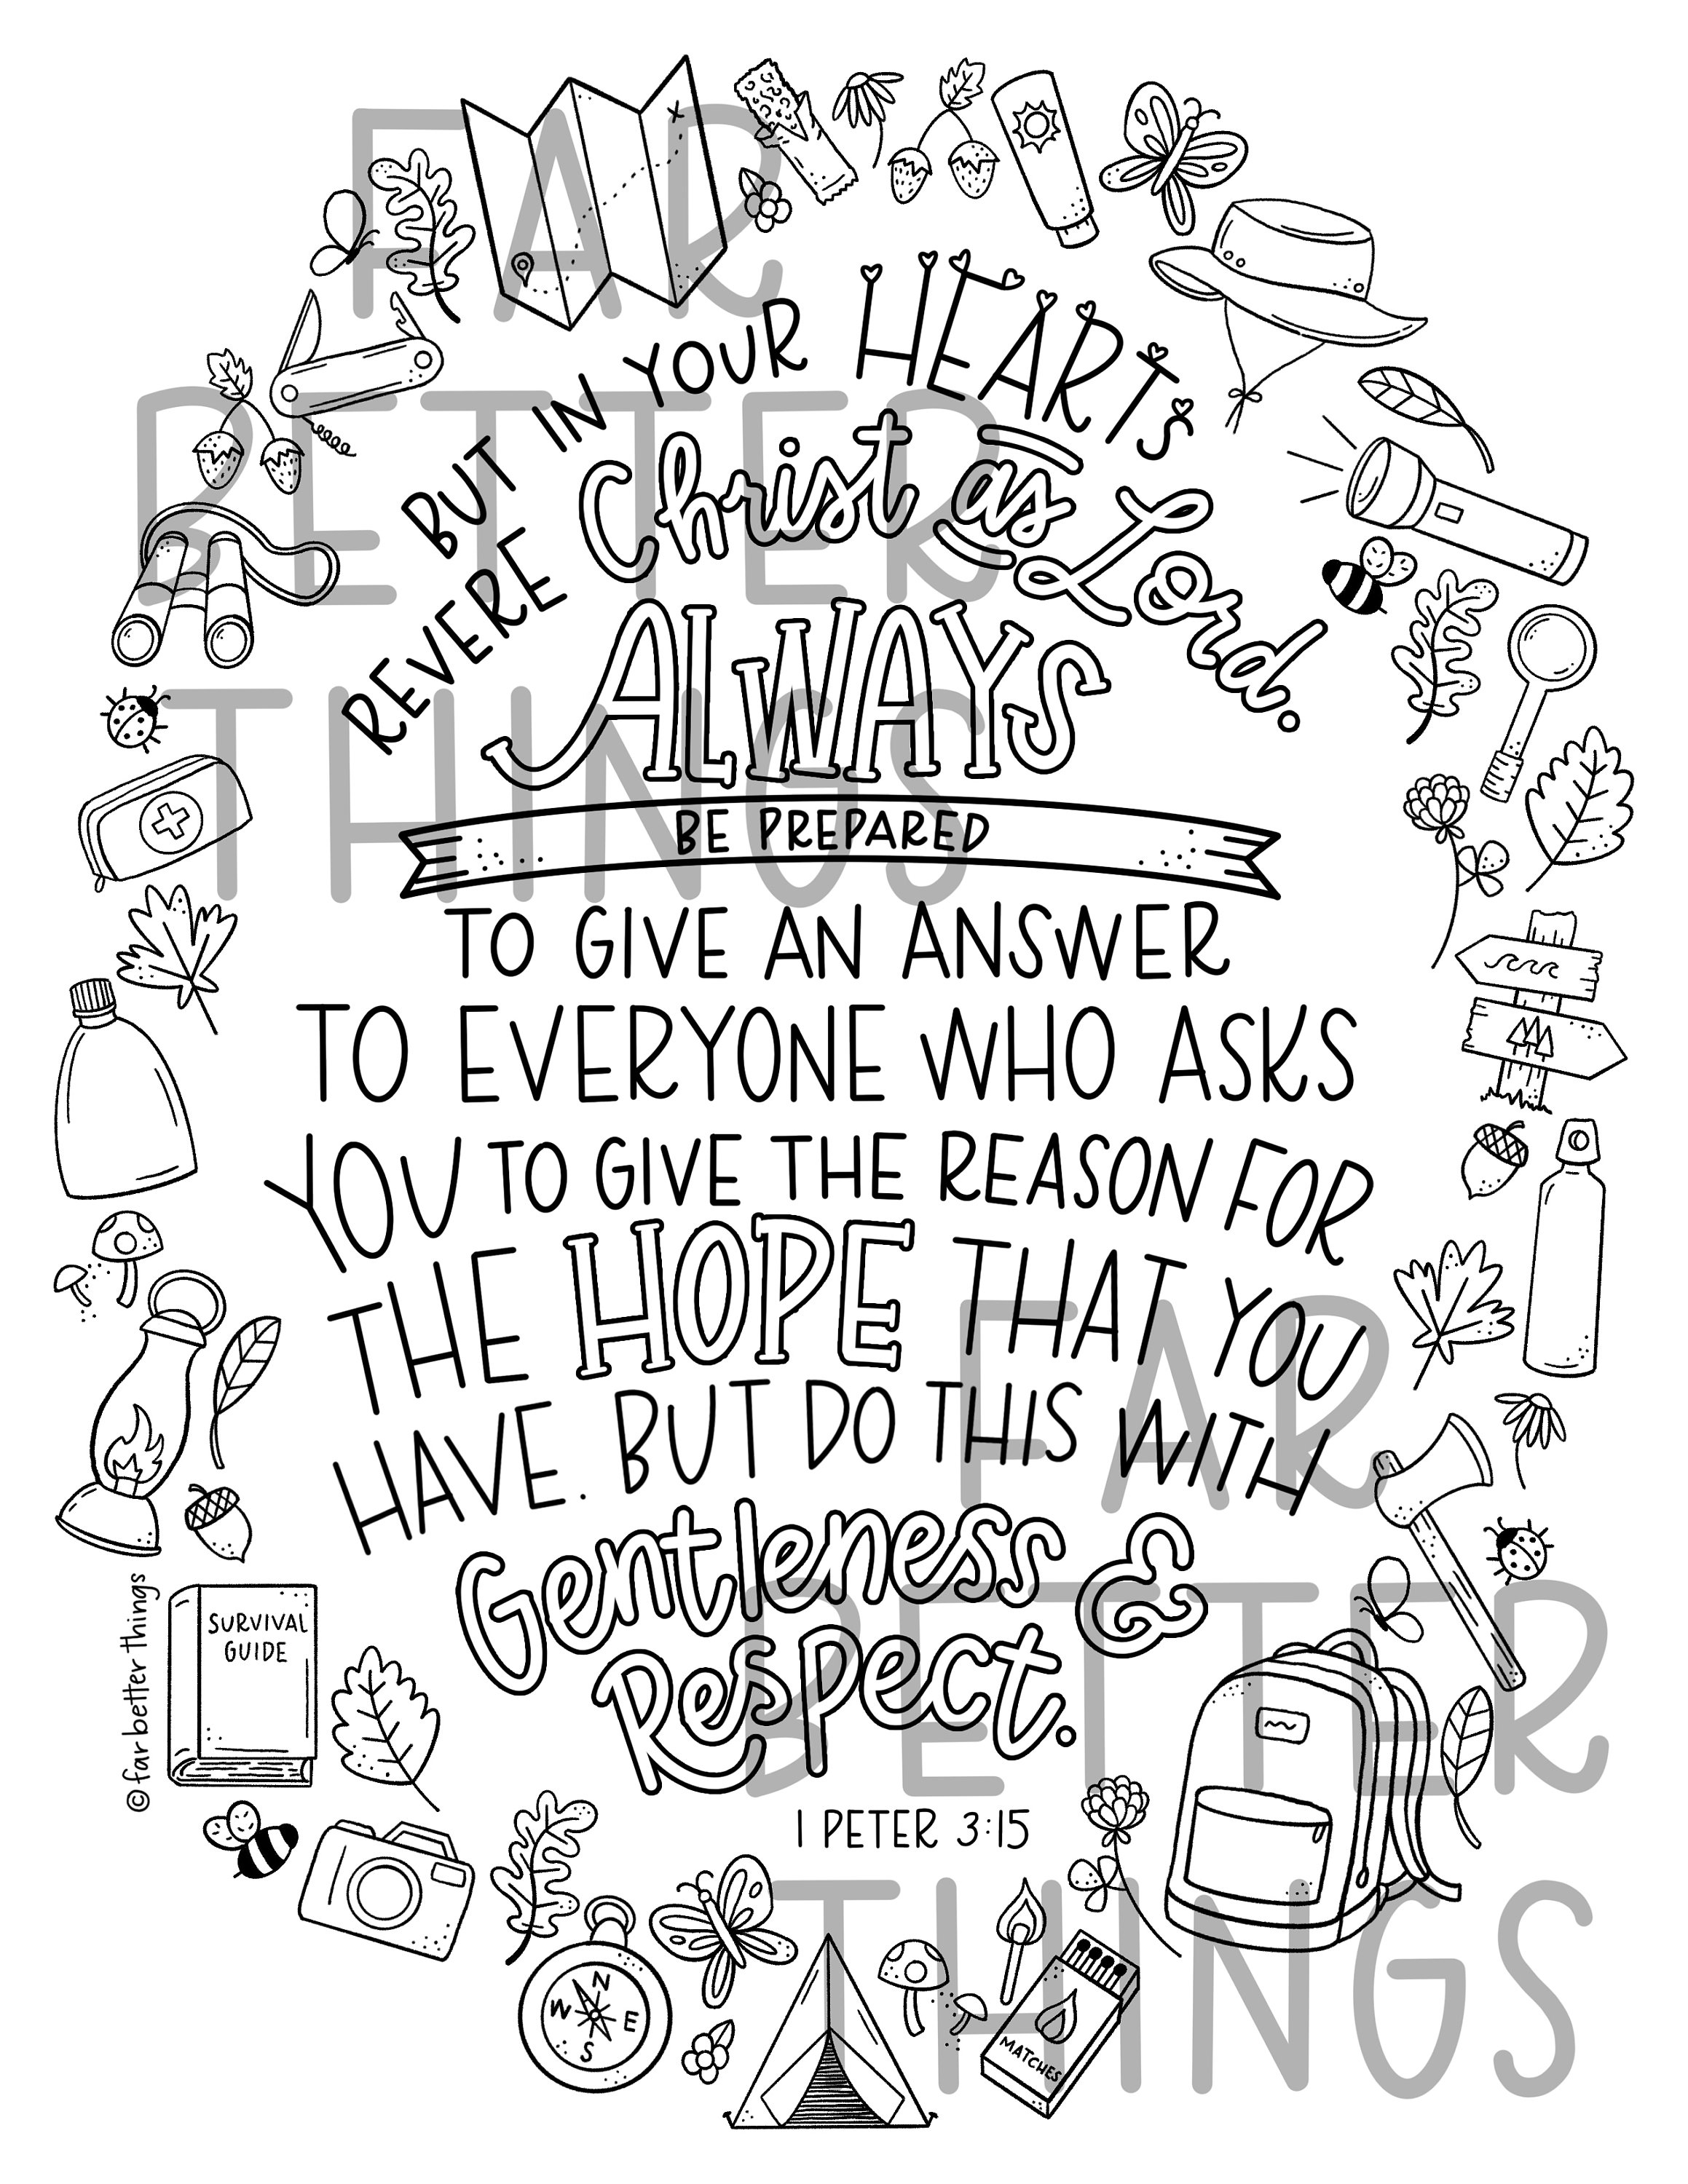 BUT IN YOUR HEARTS
REVERE Christ as Lord.
ALWAYS
BE PREPARED
TO GIVE AN ANSWER
TO EVERYONE WHO ASKS
YOU TO GIVE THE REASON FOR
THE HOPE THAT YOU
HAVE. BUT DO THIS WITH
Gentleness &
Respect.
1 PETER 3:15
SURVIVAL
GUIDE
©far better things
N
W E
S
MATCHES
FAR
BETTER
THINGS
FAR
BETTER
THINGS